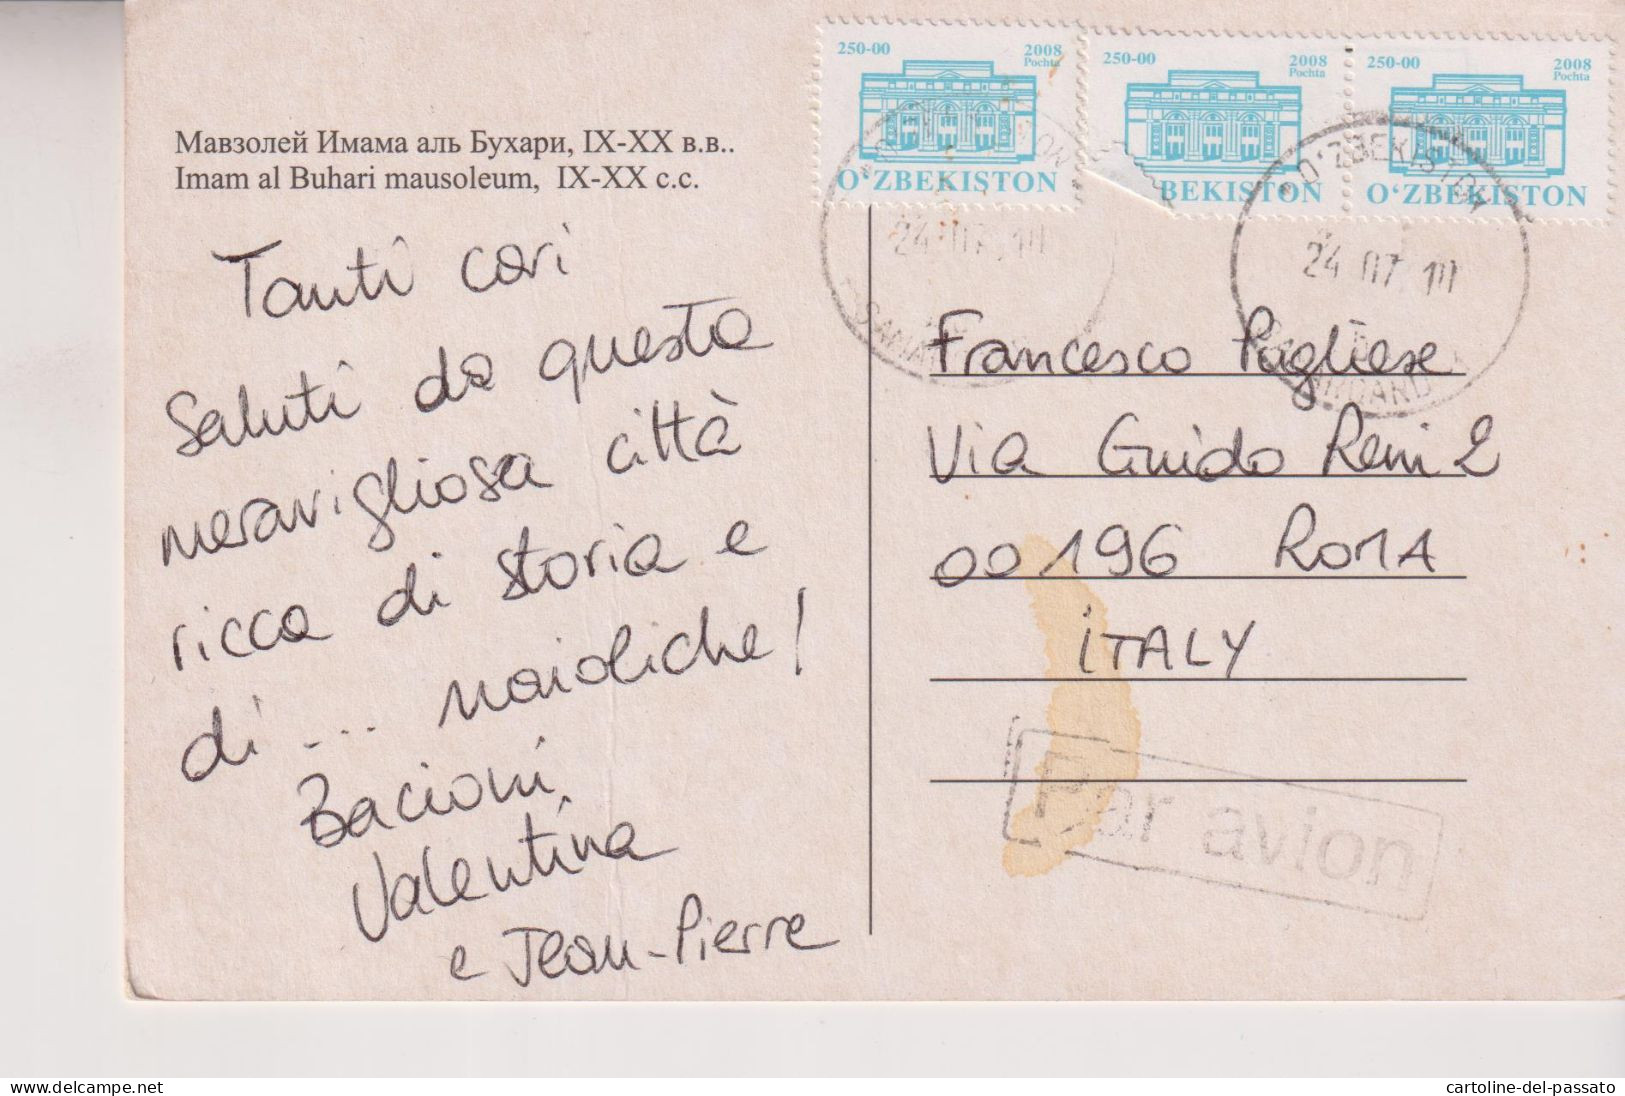 250-00 2008
Pochta
O‘ZBEKISTON
250-00 2008
Pochta
BEKISTON
250-00 2008
Pochta
O‘ZBEKISTON
Мавзолей Имама аль Бухари, IX-XX в.в..
Imam al Buhari mausoleum, IX-XX c.c.
O‘ZBEKISTON
24 07 10
24 07 10
Tanti cari
saluti da questa
meravigliosa città
ricca di storia e
di ... maioliche!
Bacioni
Valentina
e Jean-Pierre
Francesco Pugliese
Via Guido Reni 2
00196 ROMA
ITALY
Par avion
del-passato
cartoline-del-passato